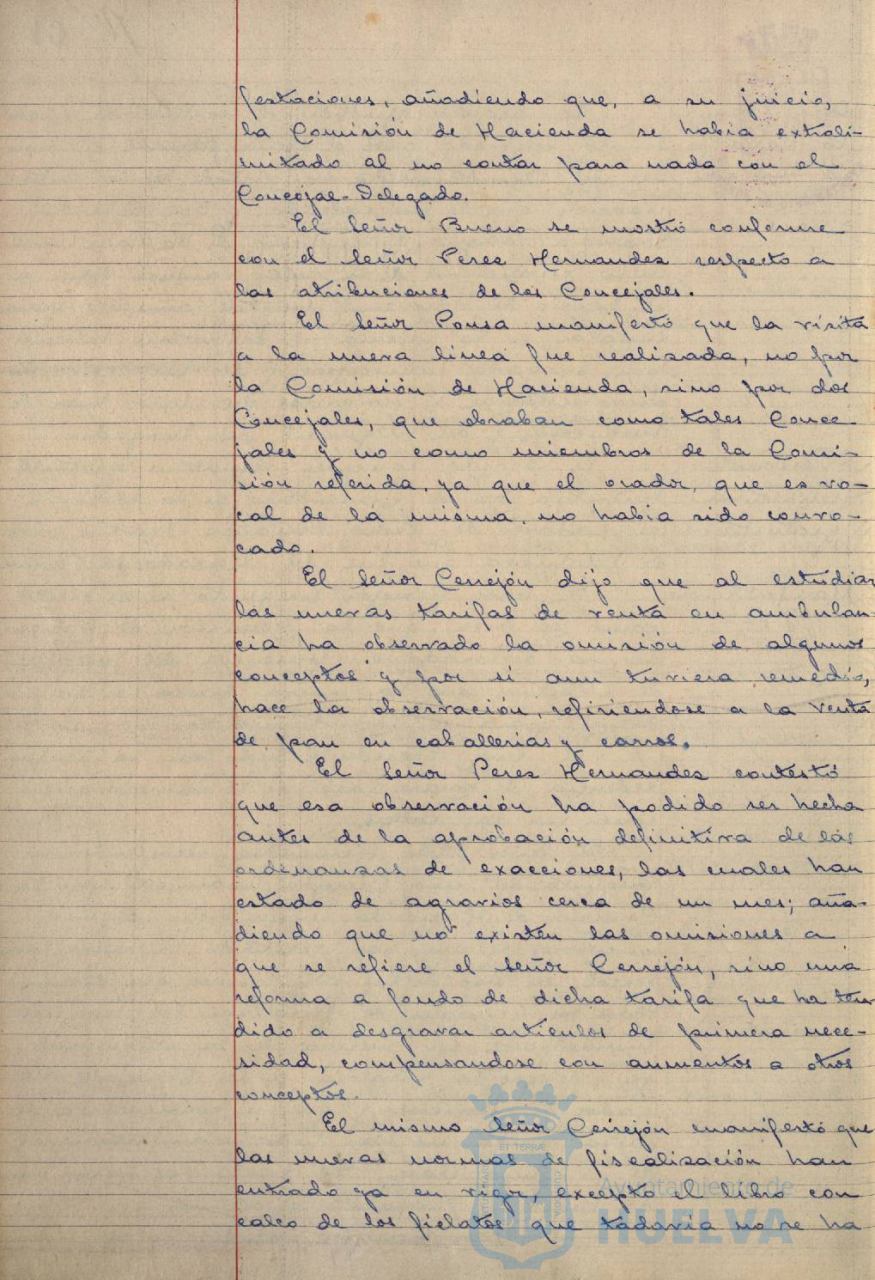 festaciones, añadiendo que, a su juicio,
la Comisión de Hacienda se habia extrali-
mitado al no contar para nada con el
Concejal-Delegado.
El Señor Bueno se mostró conforme
con el Señor Peres Hernandez respecto a
las atribuciones de los Concejales.
El Señor Ponsa manifestó que la visita
a la nueva linea fue realizada, no por
la Comisión de Hacienda, sino por dos
Concejales, que obraban como tales Conce-
jales y no como miembros de la Comi-
sión referida, ya que el orador, que es vo-
cal de la misma, no habia sido convo-
cado.
El Señor Cerrejón dijo que al estudiar
las nuevas tarifas de venta en ambulan-
cia ha observado la omisión de algunos
conceptos y por si aun tuviera remedio,
hace la observación, refiriendose a la venta
de pan en caballerias y carros.
El Señor Peres Hernandez contestó
que esa observación ha podido ser hecha
antes de la aprobación definitiva de las
ordenanzas de exacciones, las cuales han
estado de agravios cerca de un mes; aña-
diendo que no existen las omisiones a
que se refiere el Señor Cerrejón, sino una
reforma a fondo de dicha tarifa que ha ten-
dido a desgravar articulos de primera nece-
sidad, compensandose con aumentos a otros
conceptos.
El mismo Señor Cerrejón manifestó que
las nuevas normas de fiscalización han
entrado ya en vigor, excepto el libro con
calco de los fielatos que todavia no se ha
Ayuntamiento de
HUELVA